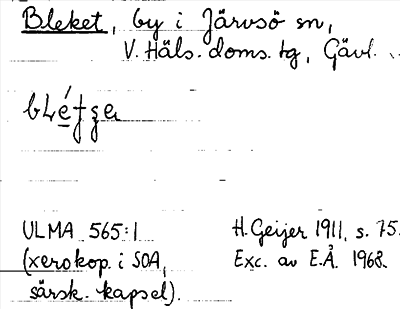 Bleket, by i Järvsö sn,
V. Häls. doms. tg, Gävl.
ULMA 565:1
(xerokop. i SOA,
särsk. kapsel).
H. Geijer 1911, s. 75.
Exc. av E.Å. 1968.